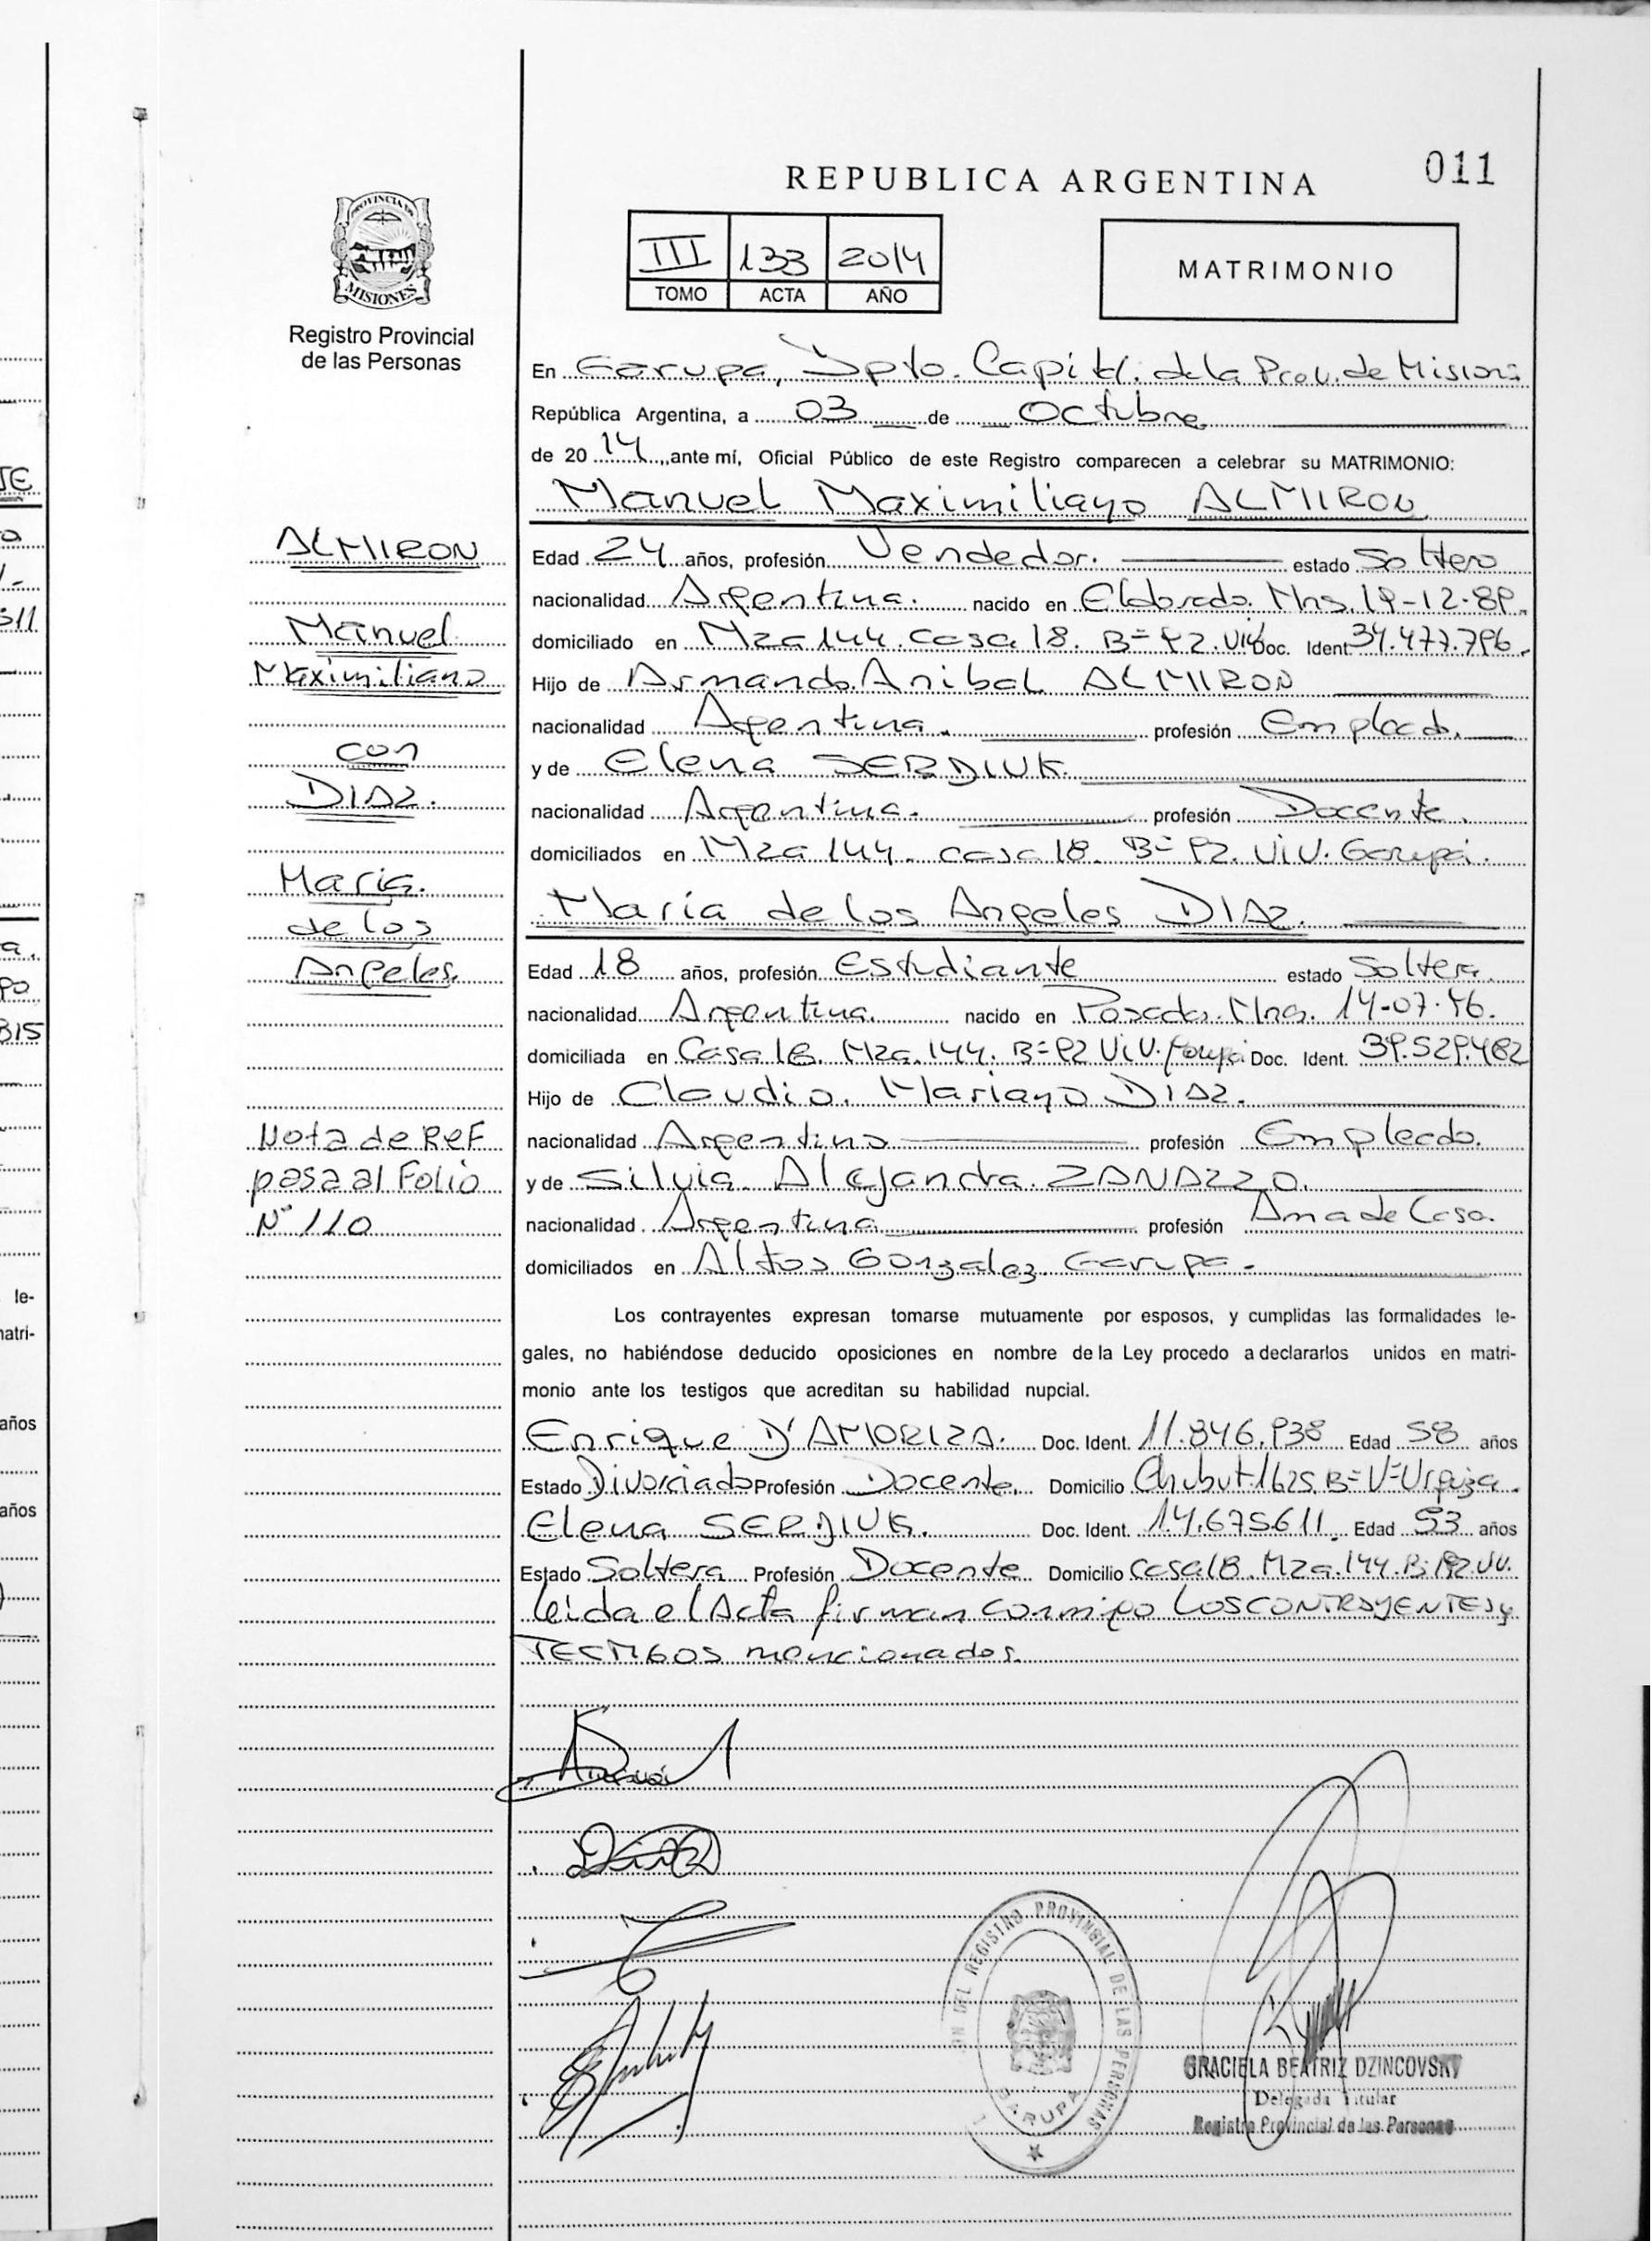 REPUBLICA ARGENTINA
011
PROVINCIA DE
MISIONES
Registro Provincial
de las Personas
III 133 2014
TOMO ACTA AÑO
MATRIMONIO
En Garupa, Dpto. Capital. de la Prov. de Misiones
República Argentina, a 03 de Octubre
de 2014, ante mí, Oficial Público de este Registro comparecen a celebrar su MATRIMONIO:
Manuel Maximiliano ALMIRON
Edad 24 años, profesión Vendedor. estado Soltero
nacionalidad Argentina. nacido en Eldorado. Mns. 19-12-89.
domiciliado en Mza 144. Casa 18. B= 92. Viv Doc. Ident. 34.477.796.
Hijo de Armando Anibal ALMIRON
nacionalidad Argentina. profesión Empleado.
y de Elena SERDIUK.
nacionalidad Argentina. profesión Docente.
domiciliados en Mza 144. casa 18. B= 92. Viv. Garupá.
María de los Angeles DIAZ.
Edad 18 años, profesión Estudiante estado Soltera.
nacionalidad Argentina. nacido en Posadas. Mns. 14-07-96.
domiciliada en Casa 18. Mza. 144. B= 92 Viv. Garupá Doc. Ident. 39.529.482
Hijo de Claudio. Mariano DIAZ.
nacionalidad Argentino profesión Empleado.
y de Silvia. Alejandra. ZANAZZO.
nacionalidad Argentina profesión Ama de Casa.
domiciliados en Altos Gonzalez. Garupa.
Los contrayentes expresan tomarse mutuamente por esposos, y cumplidas las formalidades le-
gales, no habiéndose deducido oposiciones en nombre de la Ley procedo a declararlos unidos en matri-
monio ante los testigos que acreditan su habilidad nupcial.
Enrique D'AMORIZA. Doc. Ident. 11.846.938 Edad 58 años
Estado Divorciado Profesión Docente. Domicilio Chubut 1625 B= V= Urquiza.
Elena SERDIUK. Doc. Ident. 14.675.611. Edad 53 años
Estado Soltera Profesión Docente Domicilio Casa 18. Mza. 144. B: 92. Viv.
leida el Acta firman conmigo LOS CONTRAYENTES y
TESTIGOS mencionados.
ALMIRON
Manuel
Maximiliano
con
DIAZ.
Maria.
de los
Angeles.
Nota de REF
pasa al Folio
N° 110
DEL REGISTRO PROVINCIAL DE LAS PERSONAS
GARUPA
GRACIELA BEATRIZ DZINCOVSKY
Delegada Titular
Registro Provincial de las Personas
TE
311
315
le-
matri-
años
años